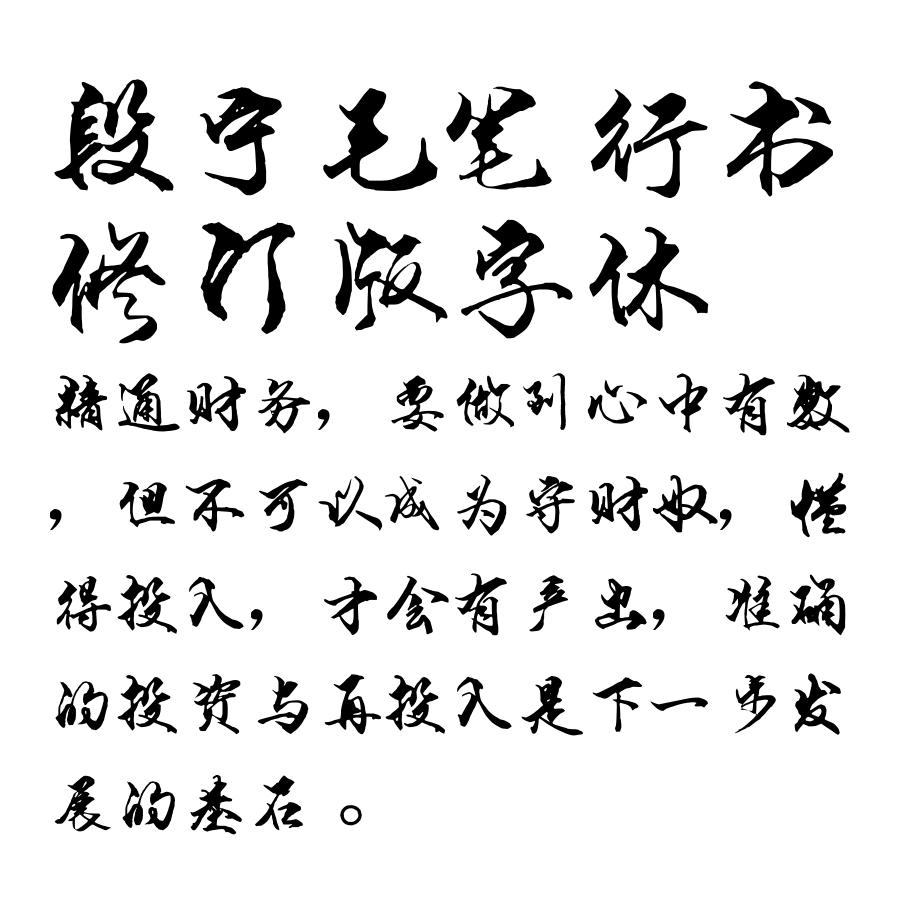 段宁毛笔行书
修订版字体
精通财务，要做到心中有数
，但不可以成为守财奴，懂
得投入，才会有产出，准确
的投资与再投入是下一步发
展的基石。